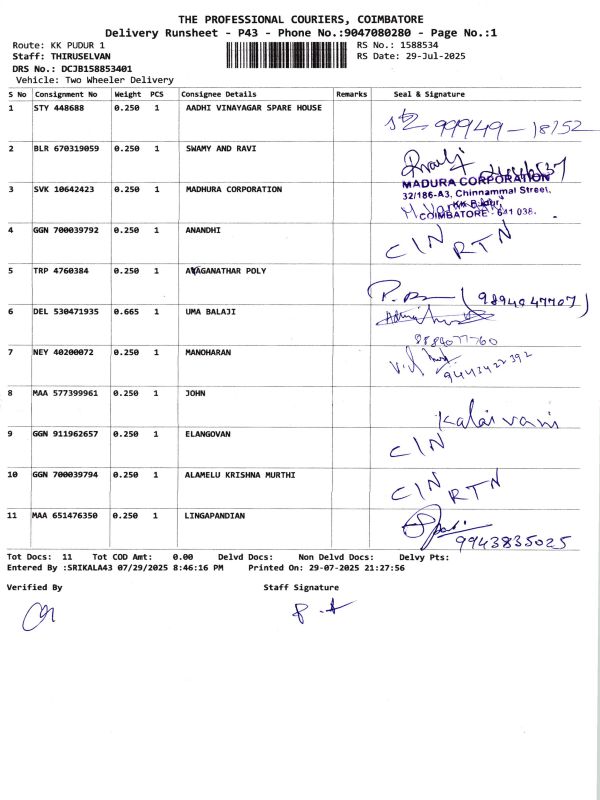 THE PROFESSIONAL COURIERS, COIMBATORE
Delivery Runsheet - P43 - Phone No.:9047080280 - Page No.:1
Route: KK PUDUR 1
RS No.: 1588534
Staff: THIRUSELVAN
RS Date: 29-Jul-2025
DRS No.: DCJB158853401
Vehicle: Two Wheeler Delivery
S No Consignment No Weight PCS Consignee Details Remarks Seal & Signature
1 STY 448688 0.250 1 AADHI VINAYAGAR SPARE HOUSE 99949-18152
2 BLR 670319059 0.250 1 SWAMY AND RAVI
3 SVK 10642423 0.250 1 MADHURA CORPORATION
MADURA CORPORATION
32/186-A3, Chinnammal Street,
COIMBATORE - 641 038.
4 GGN 700039792 0.250 1 ANANDHI C/N RTN
5 TRP 4760384 0.250 1 AYAGANATHAR POLY (9894047707)
6 DEL 530471935 0.665 1 UMA BALAJI
7 NEY 40200072 0.250 1 MANOHARAN 9443422392
8 MAA 577399961 0.250 1 JOHN Kalaivani
9 GGN 911962657 0.250 1 ELANGOVAN C/N
10 GGN 700039794 0.250 1 ALAMELU KRISHNA MURTHI C/N RTN
11 MAA 651476350 0.250 1 LINGAPANDIAN 9943835025
Tot Docs: 11 Tot COD Amt: 0.00 Delvd Docs: Non Delvd Docs: Delvy Pts:
Entered By :SRIKALA43 07/29/2025 8:46:16 PM Printed On: 29-07-2025 21:27:56
Verified By Staff Signature